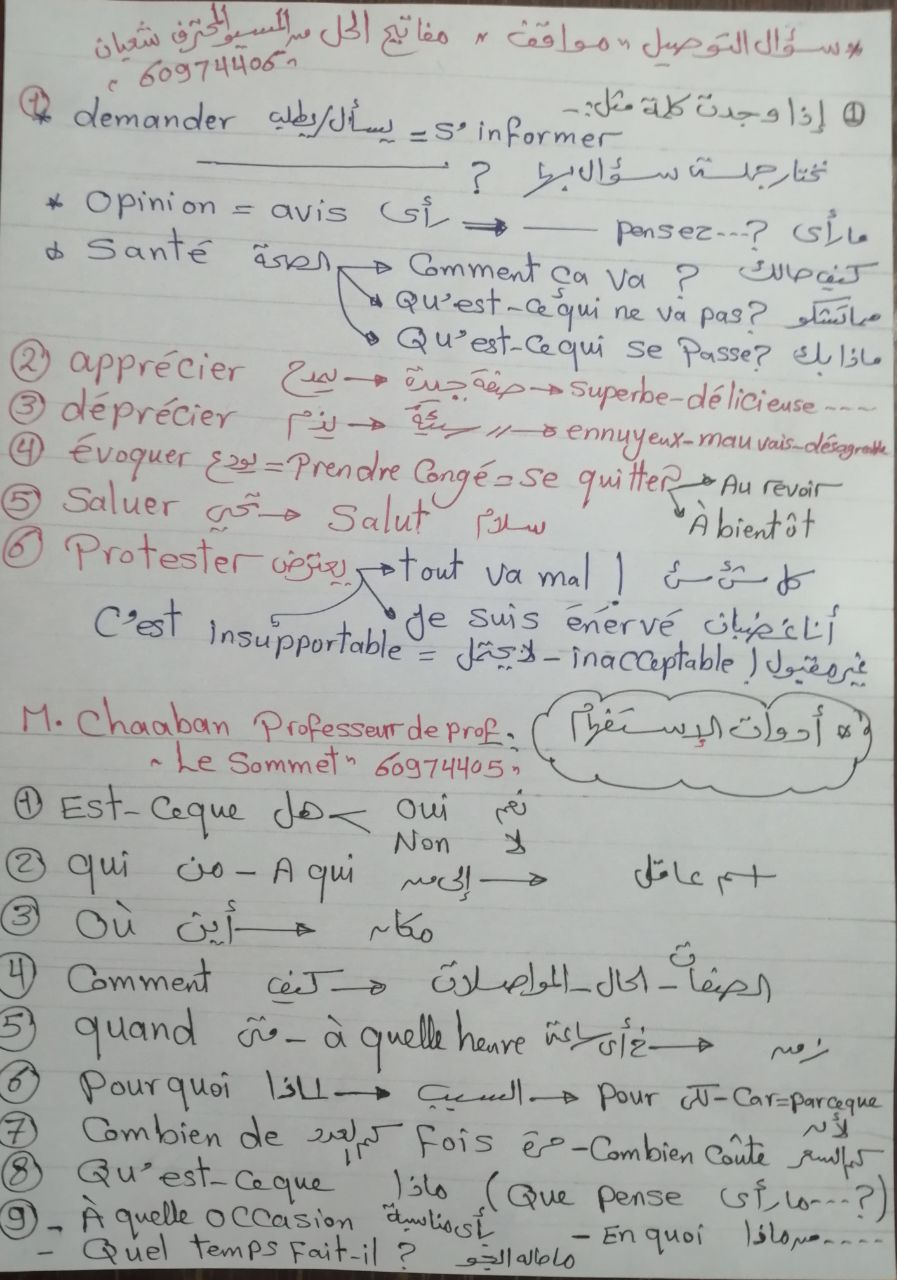 * سؤال التوصيل "مواقف" مفاتيح الحل من المسيو المحترف شعبان
"60974406"
① إذا وجدت كلمة مثل:-
① * demander يسأل/يطلب = s'informer
نختار جملة سؤال بها ? ————
* Opinion = avis رأى → —— pensez...? ما رأى
* Santé الصحة → Comment ça va ? كيف حالك
→ Qu'est-ce qui ne va pas? مما تشكو
→ Qu'est-ce qui se passe? ماذا بك
② apprécier يمدح → صفة جيدة → superbe-délicieuse ----
③ déprécier يذم → // سيئة → ennuyeux-mauvais-désagréable
④ évoquer يودع = Prendre Congé = se quitter → Au revoir
→ À bientôt
⑤ Saluer يحي → Salut سلام
⑥ Protester يعترض → tout va mal ! كل شئ سئ
→ Je suis énérvé أنا غضبان
C'est insupportable = لا يحتمل - inacceptable ! غير مقبول
M. Chaaban Professeur de prof.
"Le Sommet" 60974405"
* أدوات الإستفهام *
① Est-Ceque هل < Oui نعم
Non لا
② qui من - A qui إلى من → + اسم عاقل
③ Où أين → مكان
④ Comment كيف → الصفات - الحال - المواصلات
⑤ quand متى - à quelle heure في أى ساعة → زمن
⑥ Pourquoi لماذا → السبب → Pour لكى - Car = parceque لأن
⑦ Combien de كم العدد fois مرة - Combien Coûte كم السعر
⑧ Qu'est-Ceque ماذا (Que pense ما رأى ...?)
⑨ - À quelle occasion أى مناسبة - En quoi من ماذا ....
- Quel temps fait-il ? ما حالة الجو